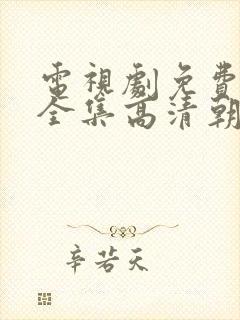 電視劇免費
全集高清朝
辛若天